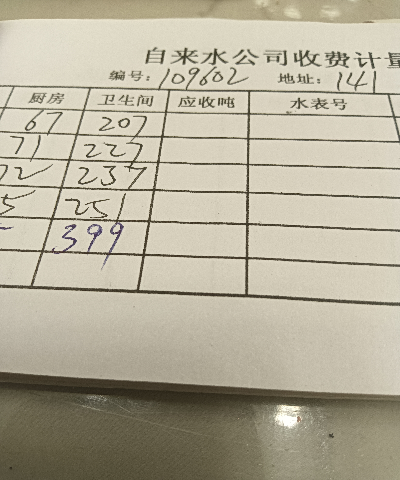 自来水公司收费计量
编号：109602 地址：141
厨房 卫生间 应收吨 水表号
67 207
71 227
72 237
5 251
399